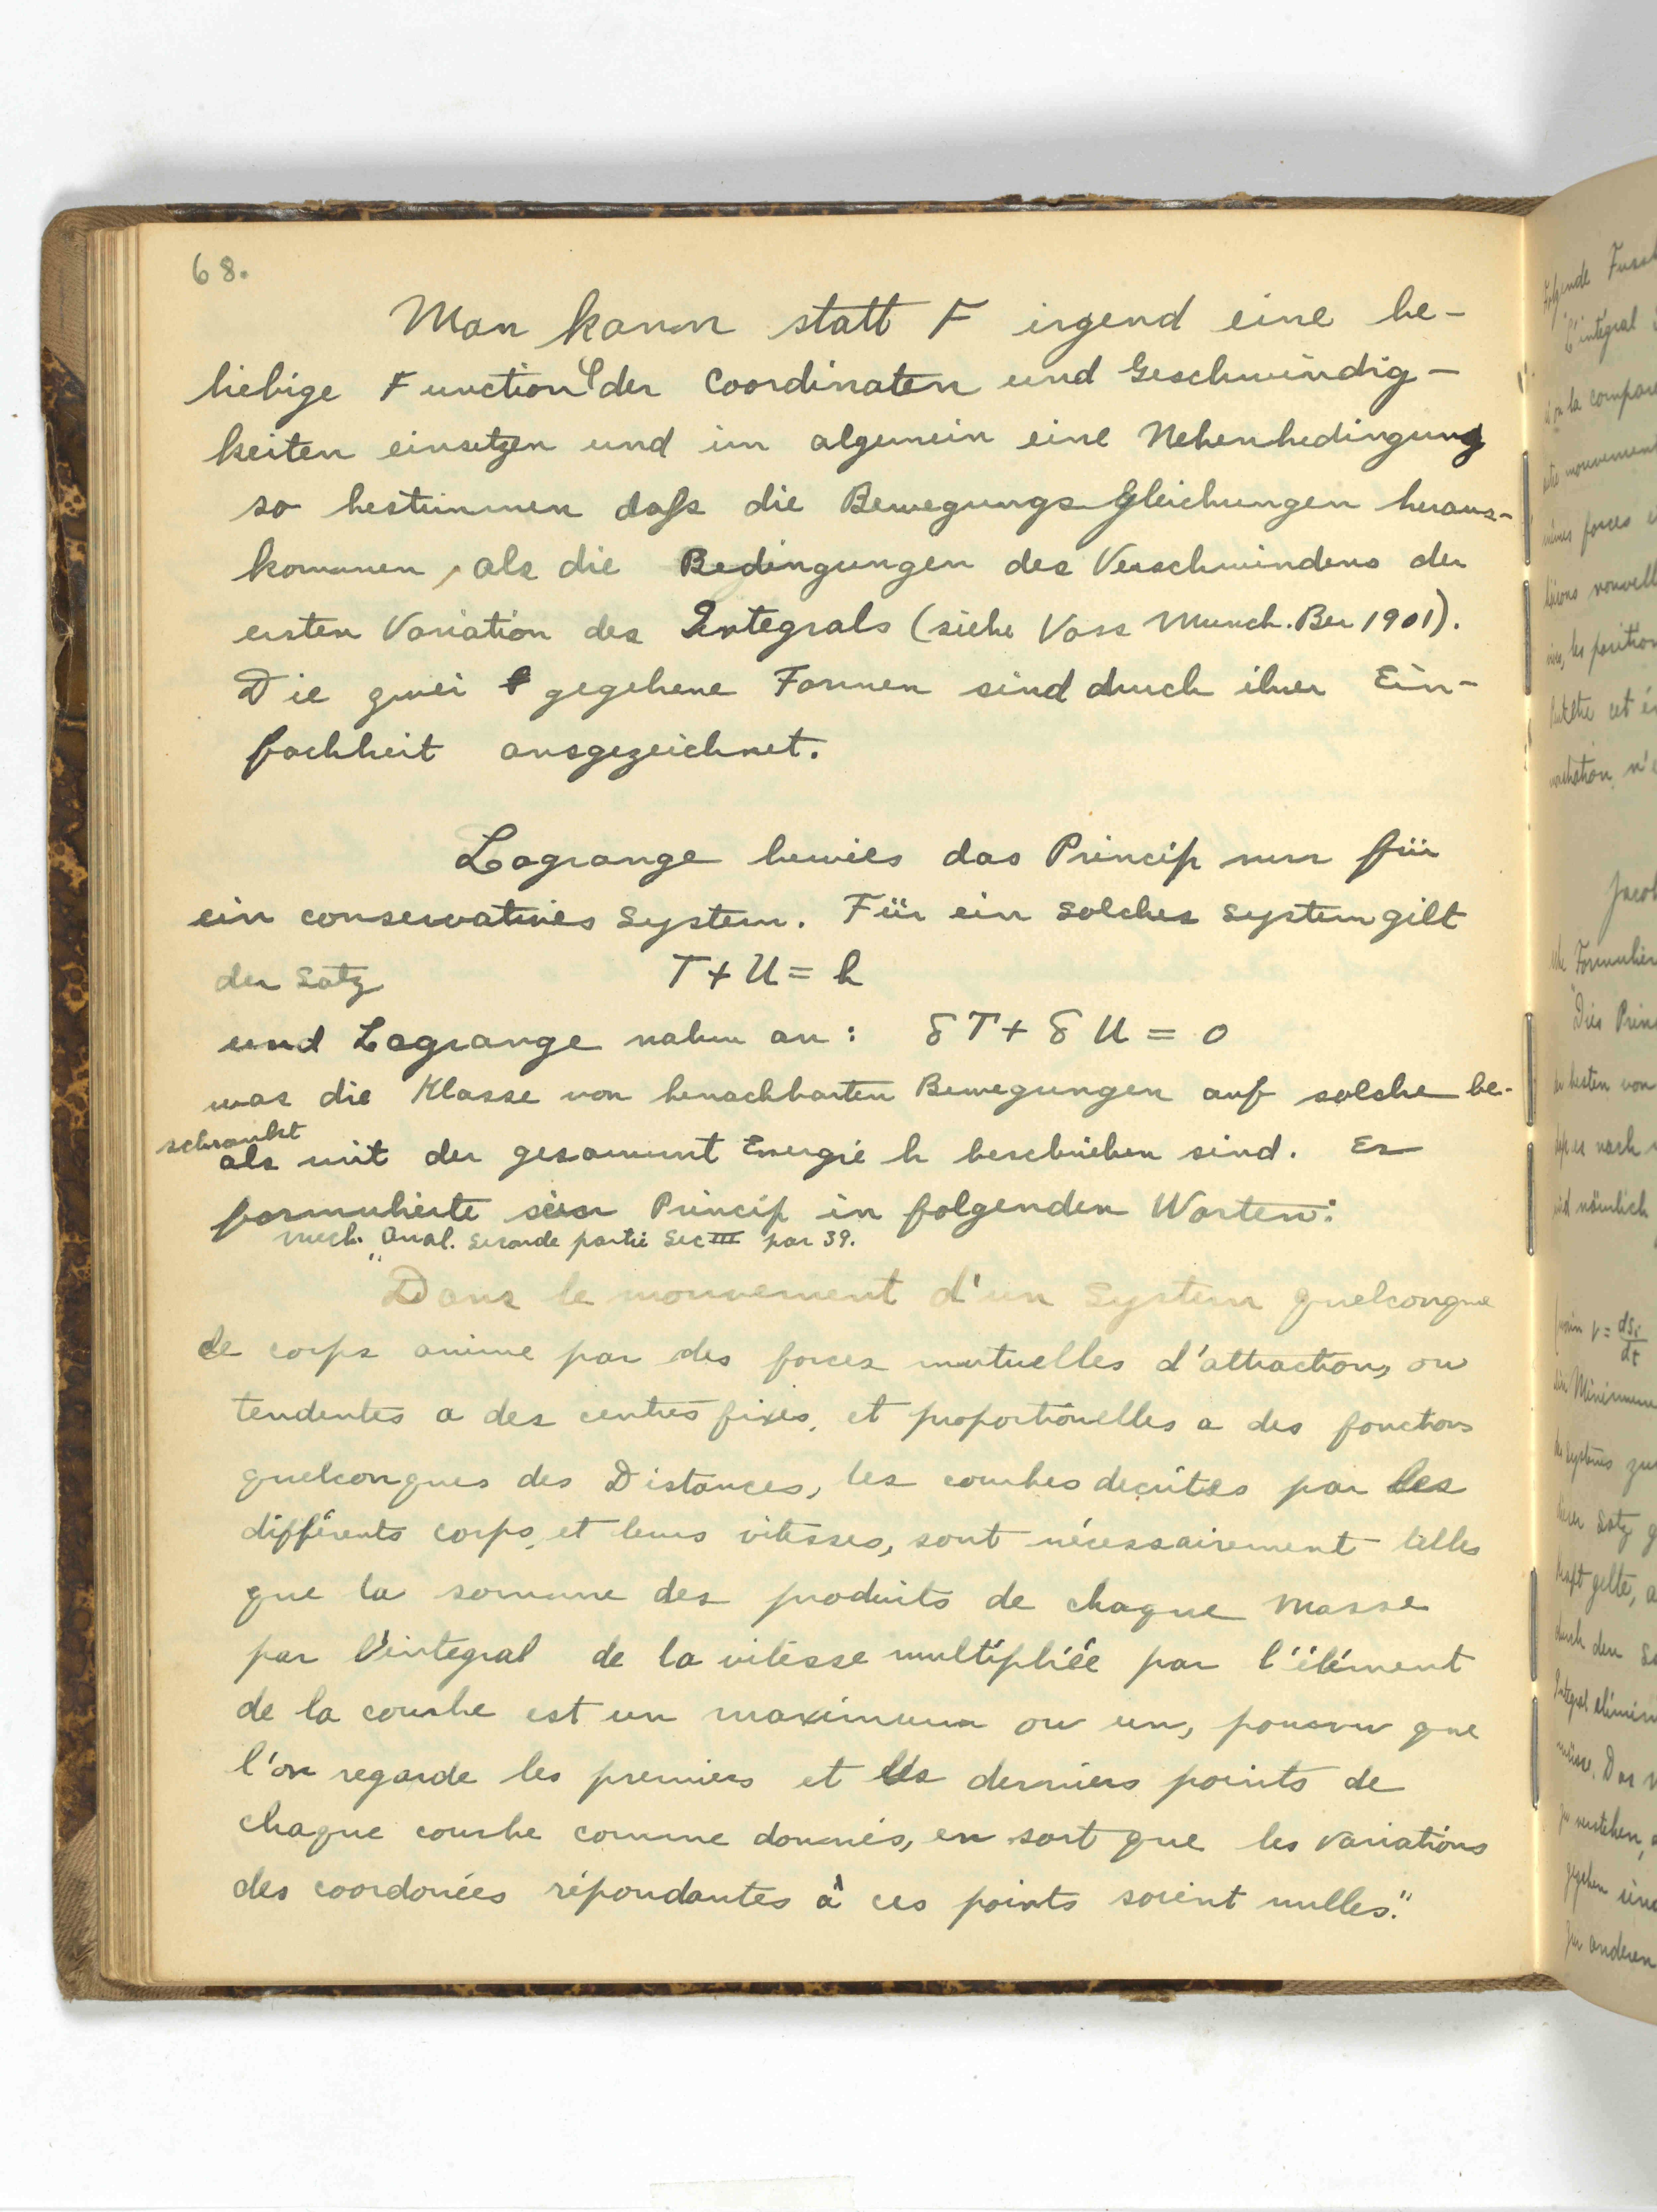 68.
Man kann statt F irgend eine be-
liebige Function der Coordinaten und Geschwindig-
keiten einsetzen und im algemein eine Nebenbedingung
so bestimmen daß die Bewegungs Gleichungen heraus-
kommen, als die Bedingungen des Verschwindens der
ersten Variation des Integrals (siehe Voss Münch. Ber 1901).
Die zwei gegebene Formen sind durch ihrer Ein-
fachheit ausgezeichnet.
Lagrange bewies das Princip nur für
ein conservatives System. Für ein solches System gilt
der Satz T + U = h
und Lagrange nahm an: δT + δU = 0
was die Klasse von benachbarten Bewegungen auf solche be-
schränkt
als mit der gesammt Energie h beschrieben sind. Er
formulierte sein Princip in folgenden Worten:
Mech. Anal. Seconde partie Sec III par 39.
"Dans le mouvement d'un System quelconque
de corps animé par des forces mutuelles d'attraction, ou
tendentes a des centres fixés, et proportionelles a des fonctions
quelconques des Distances, les courbes decrites par les
différents corps, et leurs vitesses, sont nécessairement telles
que la somme des produits de chaque masse
par l'integral de la vitesse multipliée par l'élément
de la courbe est un maximum ou un, pourvu que
l'on regarde les premiers et les derniers points de
chaque courbe comme donnés, en sort que les variations
des coordonées répondantes à ces points soient nulles."
folgende
L'integral
si on la compare
mêmes forces
les position
variation n'e
Formulier
Dies Prin
nämlich
v = dsi/dt
Minimum
des Systems
Satz
gelte,
durch den
Integral
müsse. Das
zu verstehen,
gegeben
zu anderen